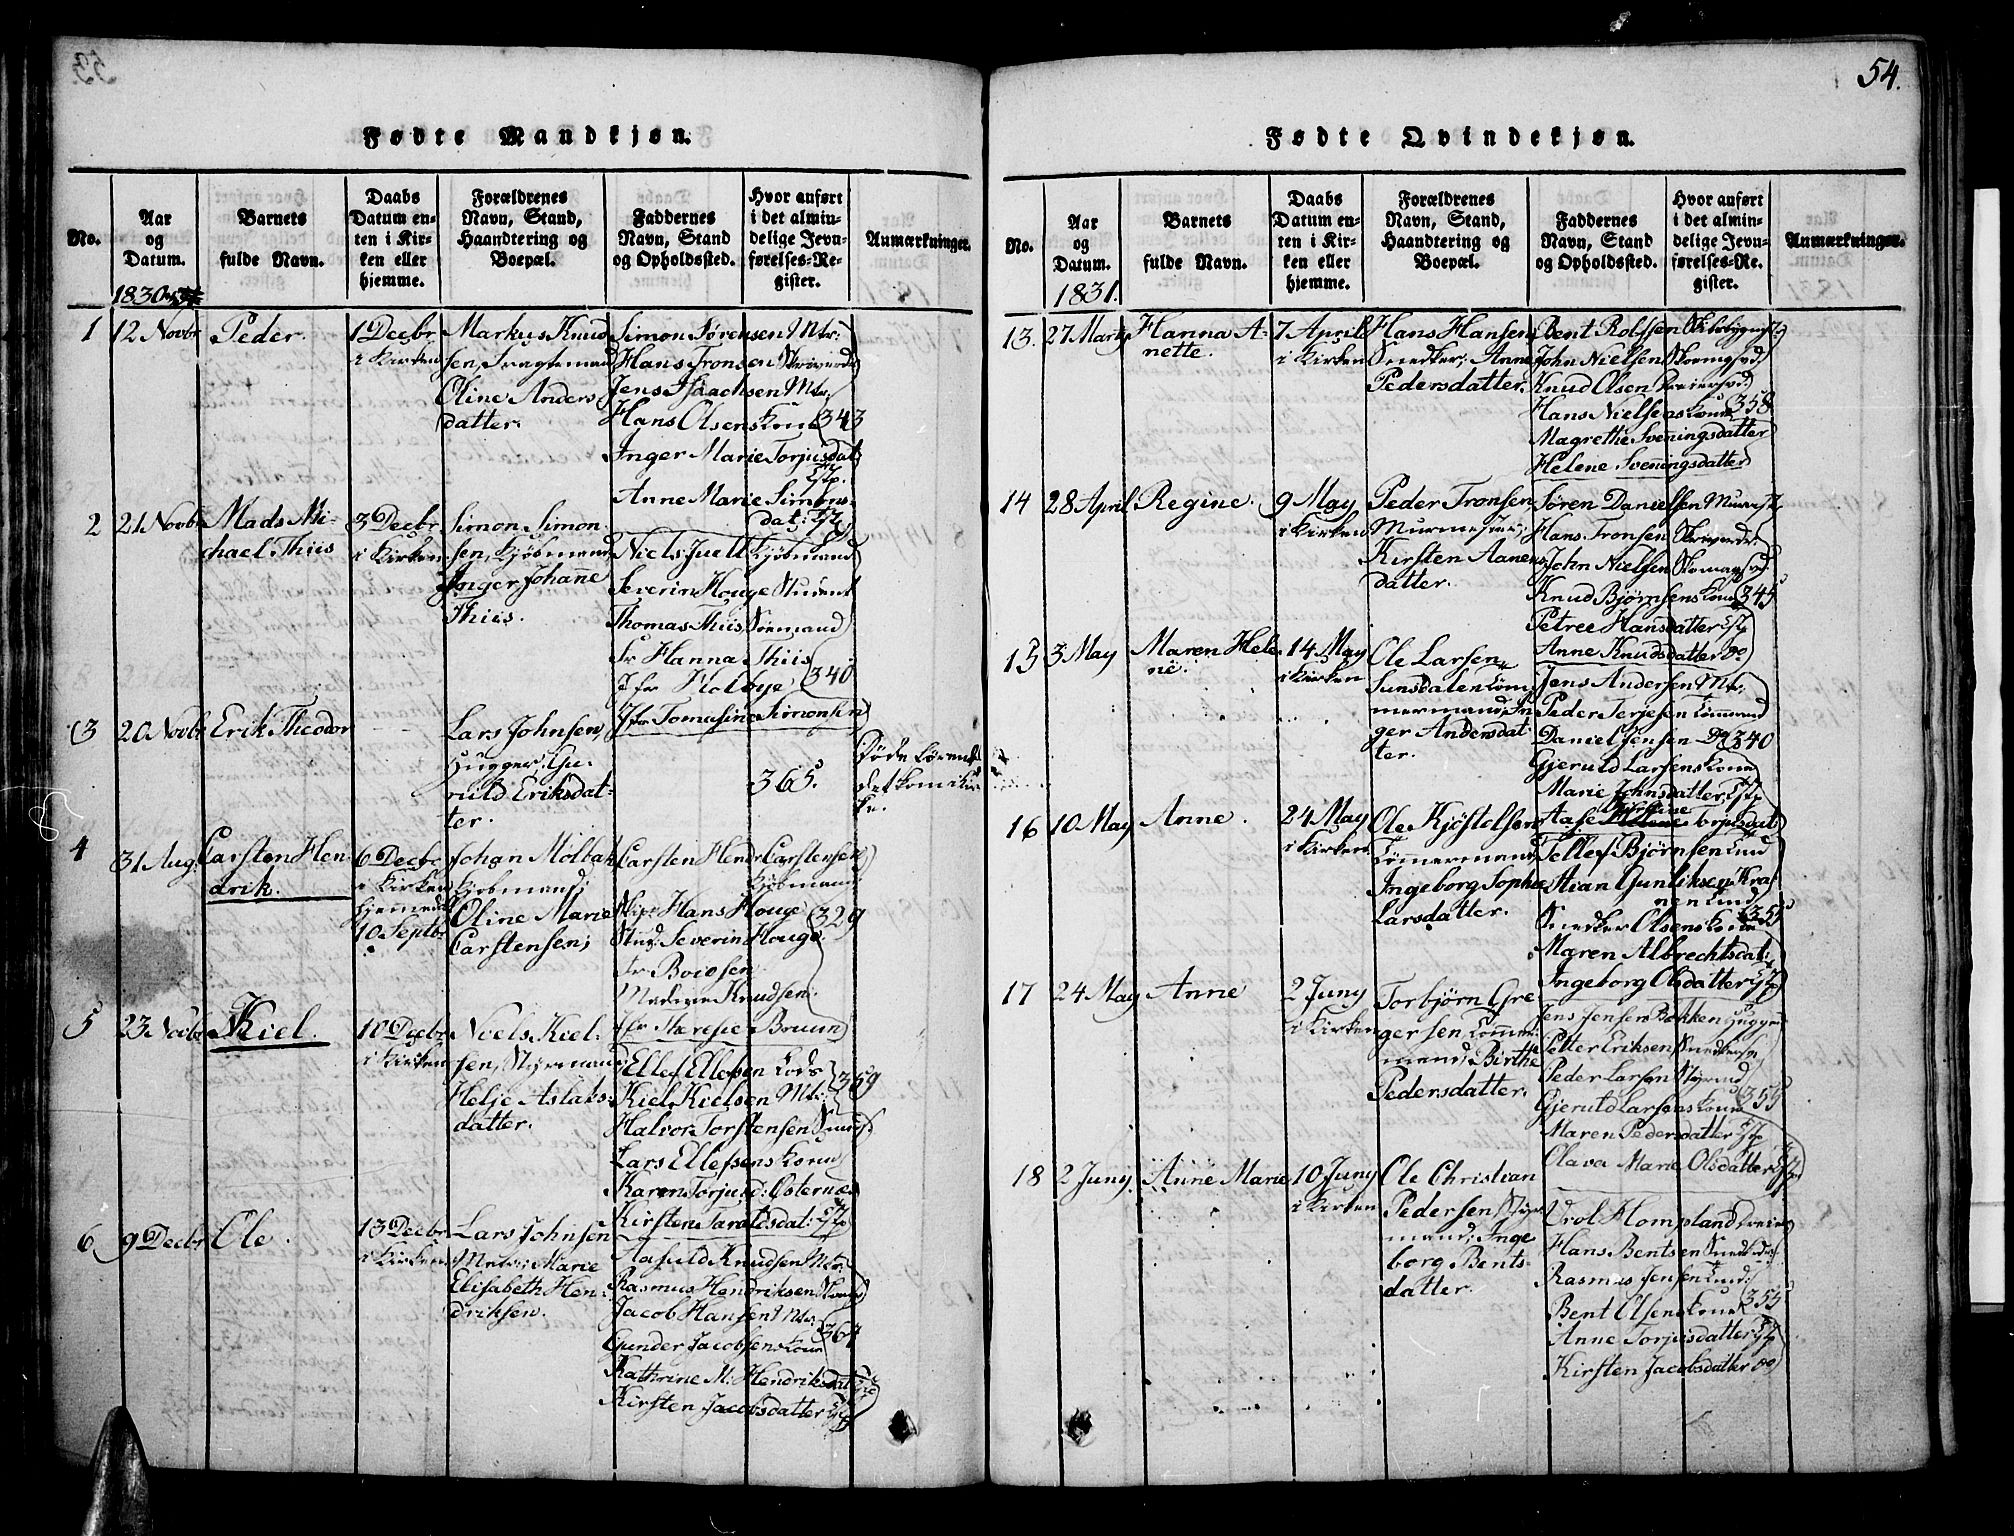 54.
Fødte Mandkjøn.
No.
Aar og Datum.
Barnets fulde Navn.
Daabs Datum enten i Kirken eller hjemme.
Forældrenes Navn, Stand, Haandtering og Boepæl.
Faddernes Navn, Stand og Opholdssted.
Hvor anført i det almindelige Jevnførelses-Register.
Anmærkninger.
1830
1
12 Novbr
Peder.
1 Decbr
i Kirken
Markus Knud
sen,
Oline Anders
datter.
Simon Sørensen Mtr:
Hans Tronsen
Jens Isaachsen Mtr.
Hans Olsens Kone
343
Inger Marie Torjusdat:
Anne Marie Simons
dat:
2
21 Novbr
Mads Mi-
chael Thiis
3 Decbr
i Kirken
Simon Simon
sen, Kjøbmand
Inger Johanne
Thiis.
Niels Juell Kjøbmand
Severin Houge Student
Thomas Thiis, Søemand
Fr Hanna Thiis
Jfr Holbye
340
Jfr Tomasine Simonsen
3
20 Novbr
Erik Theodor
Lars Johnsen,
Hugger, Gu-
ruld Eriksdat-
ter.
365.
Døde
det kom i Kir-
ke.
4
31 Aug:
Carsten Hen-
drik.
6 Decbr
i Kirken
hjemmed
10 Septbr
Johan Moltzau
Kjøbmand;
Oline Marie
Carstensen;
Carsten Hendr Carstensen
Kjøbmand
Hans Houge
329
Stud: Severin Houge
Fr Boiesen
Madame Knudsen.
Jfr Therese Bruun
5
23 Novbr
Kiel.
10 Decbr
i Kirken
Niels Kiel-
sen, Styrmand
Helje Aslaks-
datter.
Ellef Ellefsen Lods
359
Kiel Kielsen Mtr:
Halvor Torstensen
Lars Ellefsens Kone
Karen Torjusd: Østernæs
Kirsten Taraldsdat:
6
9 Decbr
Ole.
13 Decbr
i Kirken
Lars Johnsen
Marie
Elisabeth Hen-
driksen.
Aasuld Knudsen Mtr:
Rasmus Hendriksen
Jacob Hansen Mtr.
Gunder Jacobsens Kone
Kathrine M: Hendriksdat
Kirsten Jacobsdatter
Fødte Qvindekjøn.
No.
Aar og Datum.
Barnets fulde Navn.
Daabs Datum enten i Kirken eller hjemme.
Forældrenes Navn, Stand, Haandtering og Boepæl.
Faddernes Navn, Stand og Opholdssted.
Hvor anført i det almindelige Jevnførelses-Register.
Anmærkninger.
1831.
13.
27 Marty
Hanna A-
nette.
7 April
i Kirken
Hans Hansen
Snedker; Anne
Pedersdatter.
Bent Rolfsen
John Nielsen
Knud Olsen
Hans Nielsens Kone
358
Magrethe Svenningsdatter
Helene Svenningsdatter
14
28 April
Regine.
9 May
i Kirken
Peder Tronsen
Murmester;
Kirsten Aanens
datter.
Søren Danielsen
Hans Tronsen
John Nielsen
Knud Bjørnsens Kone
345
Petree Hansdatter
Anne Knudsdatter do
15
3 May
Maren Hele-
ne.
14 May
i Kirken
Ole Larsen
Sunsdalen Tøm-
mermand, In-
ger Andersdat-
ter.
Jens Andersen Mtr:
Peder Terjesen
Daniel Jensen Do
340
Gjeruld Larsens Kone
Marie Johnsdatter
Aase
16
10 May
Anne.
24 May
i Kirken.
Ole Kjøstolsen
Tømmermand
Ingeborg Sophie
Larsdatter.
Tellef Bjørnsen Lund
Stian Gunliksen Kra-
nen Lund
Snedker Olsens Kone
355
Maren Albrechtsdat:
Ingeborg Olsdatter
17
24 May
Anne
2 Juny
i Kirken
Torbjørn Gre-
gersen Tømmer-
mand; Birthe
Pedersdatter.
Jens Jensen Bakken
Petter Eriksen
Peder Larsen
Gjeruld Larsens Kone
355
Maren Pedersdatter
Olava Marie Olsdatter
18
2 Juny.
Anne Marie
10 Juny
i Kirken
Ole Christian
Pedersen Styr-
mand; Inge-
borg Bents-
datter.
Urol Hompland
Hans Bentsen
Rasmus Jensen Lund:
Bent Olsens Kone
355
Anne Torjusdatter
Kirsten Jacobsdatter do